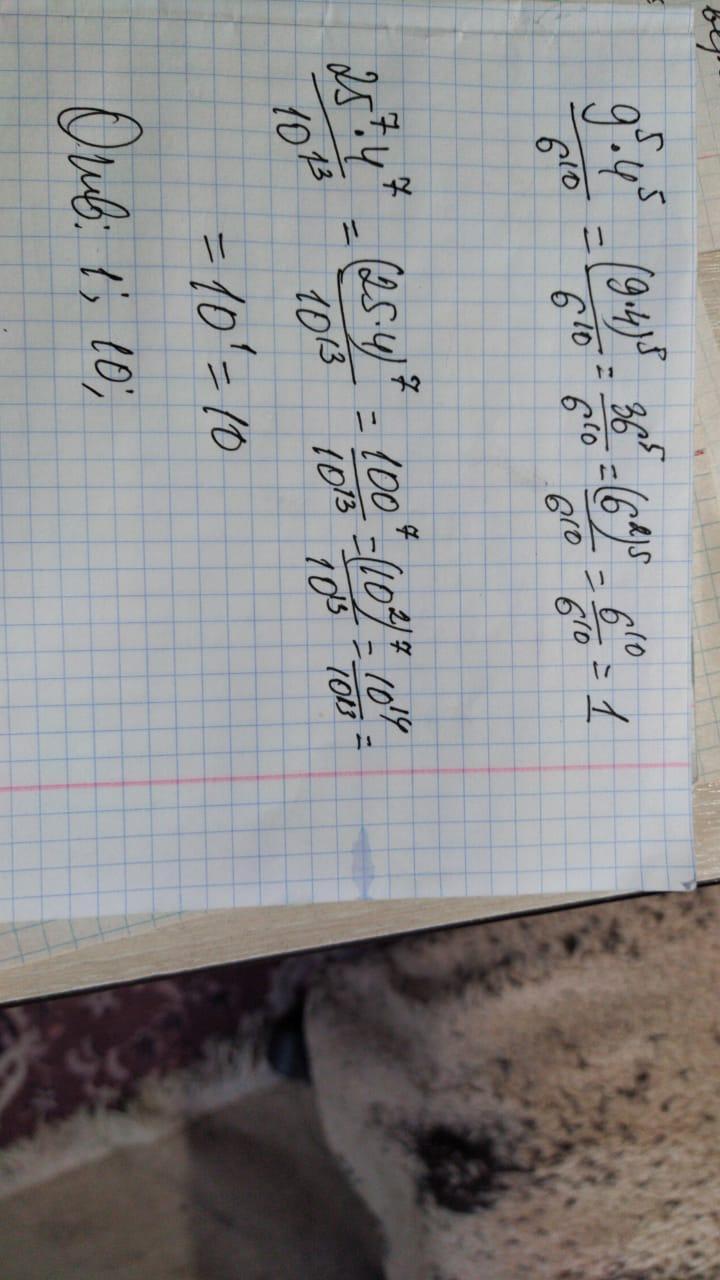 9⁵·4⁵/6¹⁰ = (9·4)⁵/6¹⁰ = 36⁵/6¹⁰ = (6²)⁵/6¹⁰ = 6¹⁰/6¹⁰ = 1
25⁷·4⁷/10¹³ = (25·4)⁷/10¹³ = 100⁷/10¹³ = (10²)⁷/10¹³ = 10¹⁴/10¹³ =
= 10¹ = 10
Отв: 1; 10;